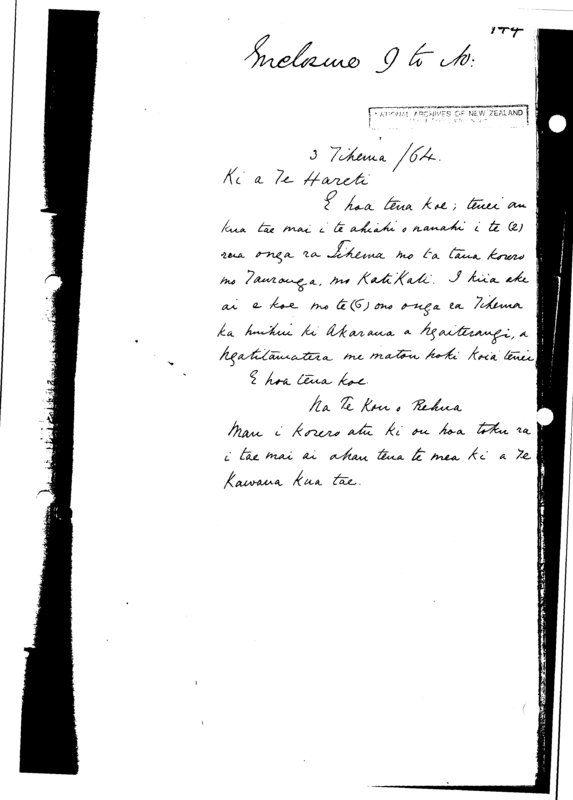 144
Enclosure 9 to No:
NATIONAL ARCHIVES OF NEW ZEALAND
3 Tihema /64.
Ki a Te Hareti
E hoa tena koe; tenei au
kua tae mai i te ahiahi o nanahi i te (2)
rua onga ra Tihema mo ta taua korero
mo Tauranga, mo KatiKati. I kiia ake
ai e koe mo te (6) ono onga ra Tihema
ka huihui ki Akarana a Ngaiterangi, a
Ngatitamatera me matou hoki koia tenei
E hoa tena koe.
Na Te Kou o Rehua
Mau i korero atu ki ou hoa toku ra
i tae mai ai ahau tena te mea ki a Te
Kawana kua tae.